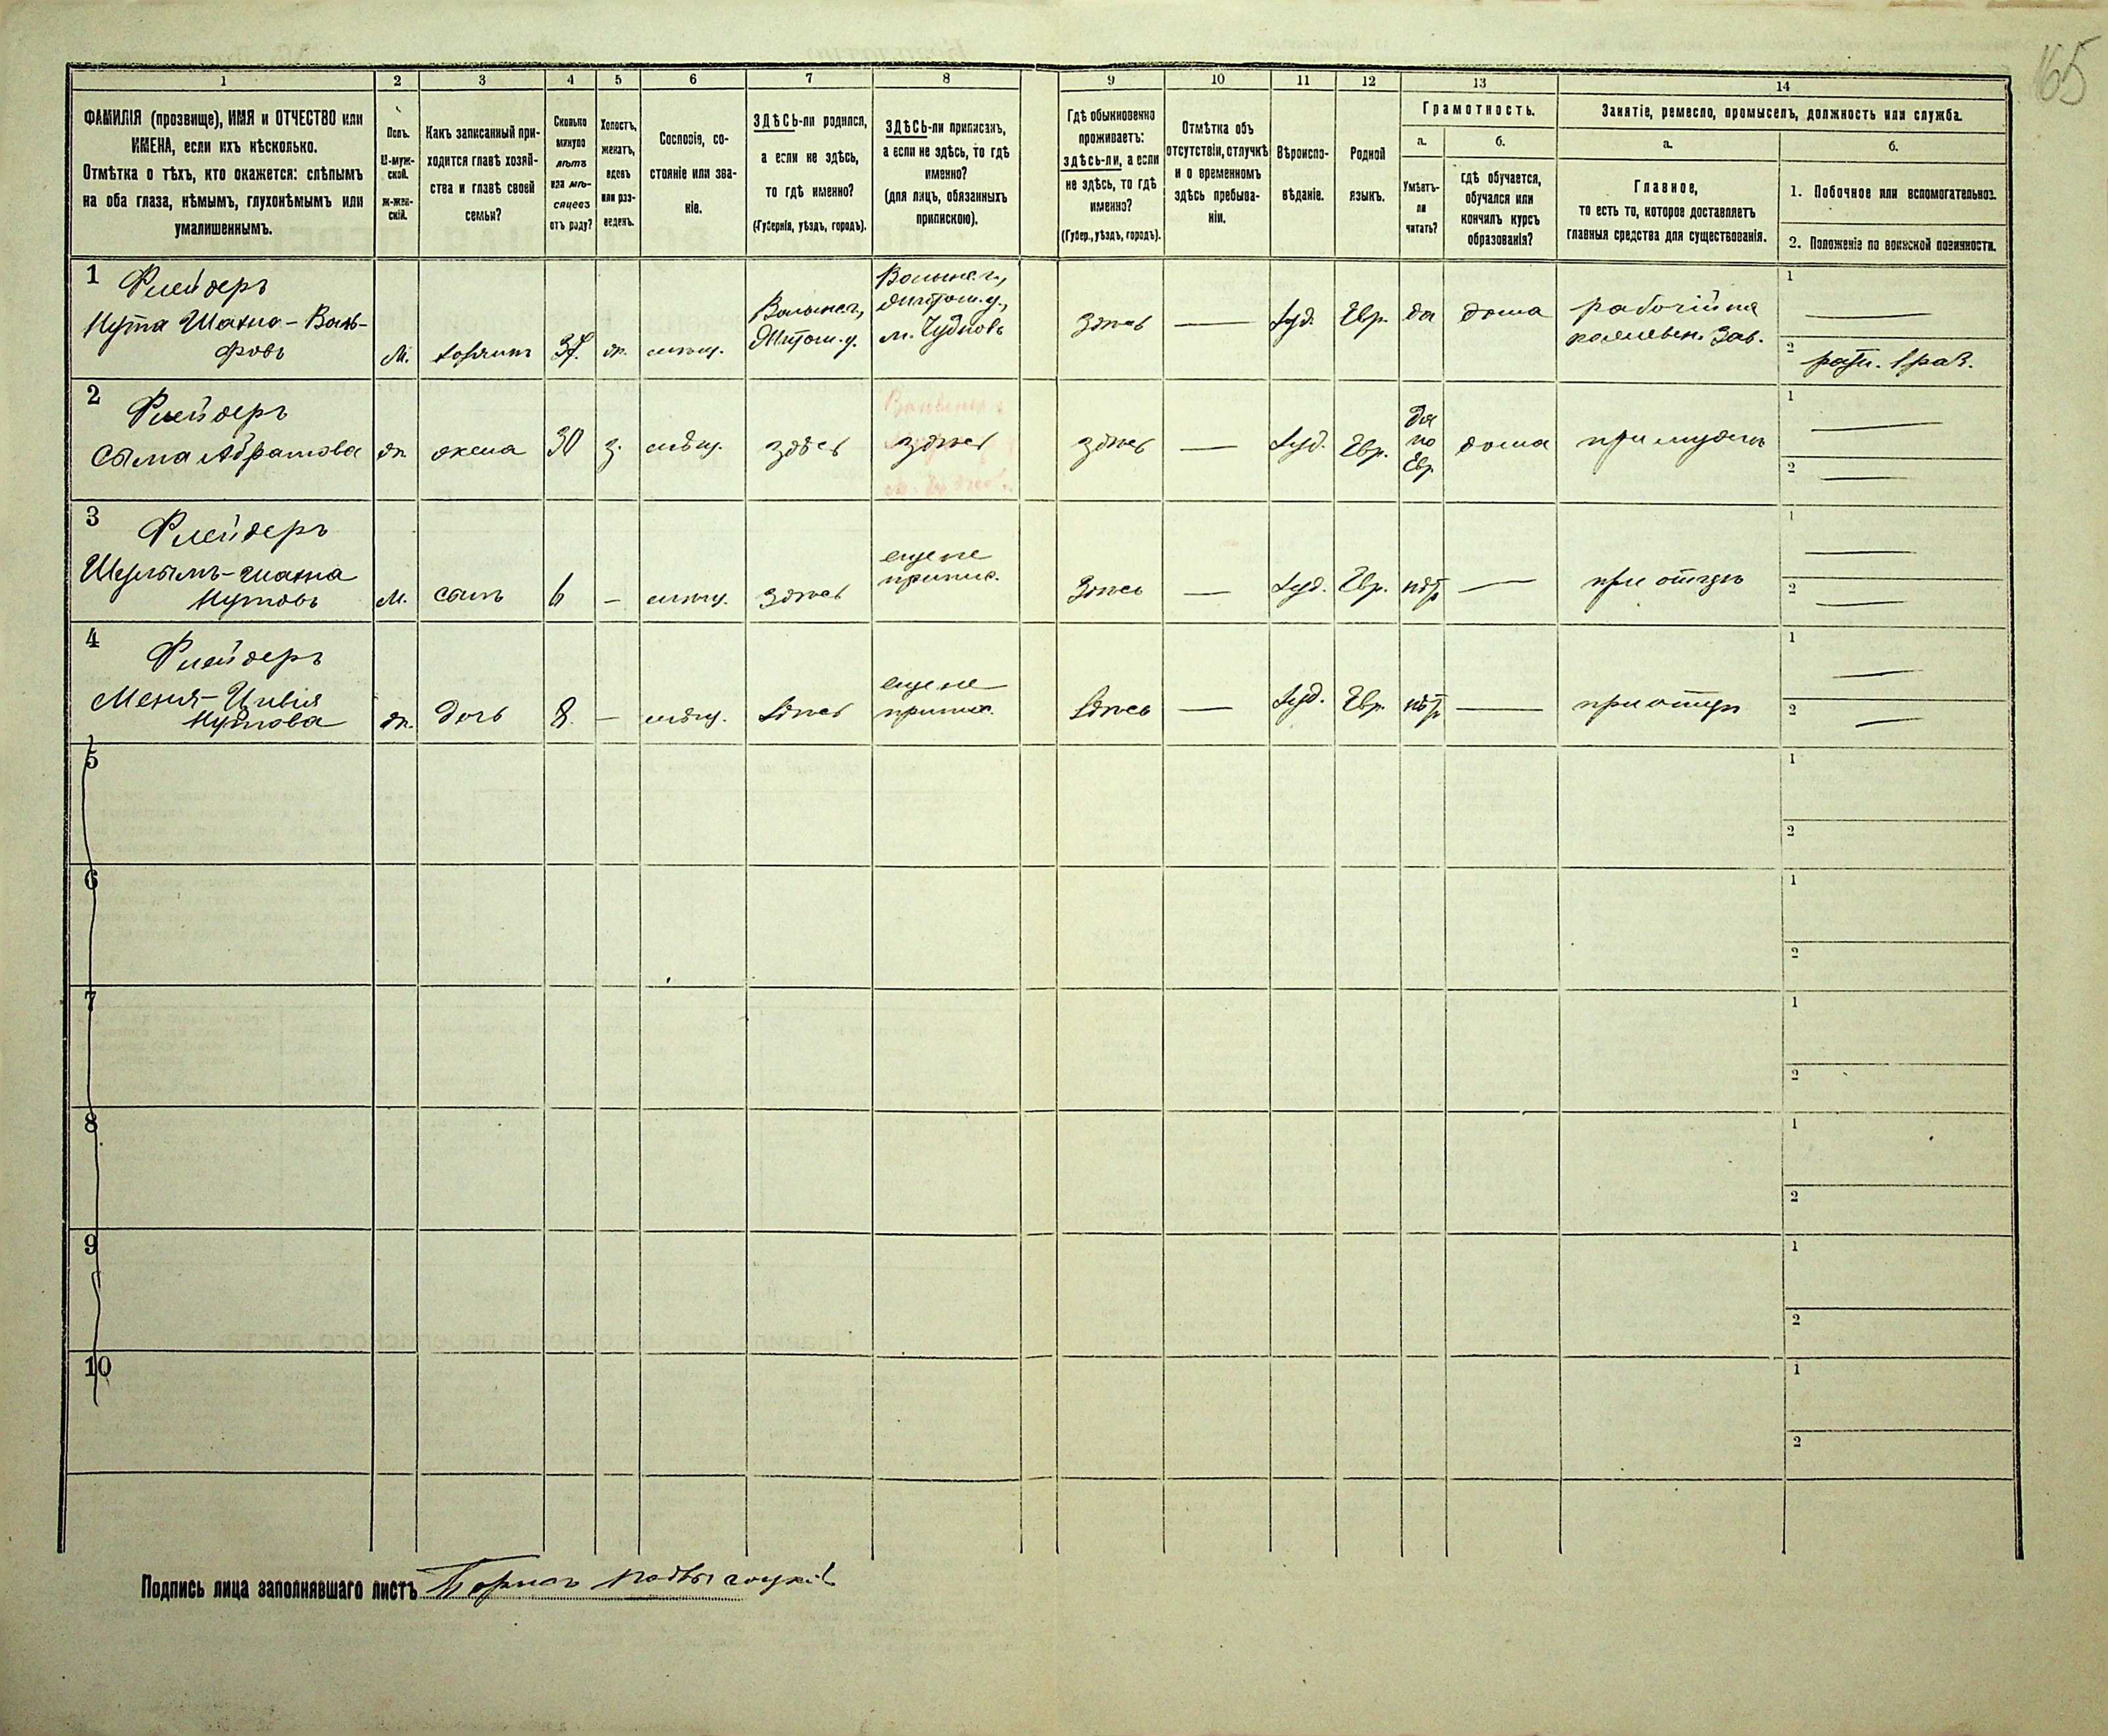 165
1
2
3
4
5
6
7
8
9
10
11
12
13
14
ФАМИЛІЯ (прозвище), ИМЯ и ОТЧЕСТВО или
ИМЕНА, если ихъ нѣсколько.
Отмѣтка о тѣхъ, кто окажется: слѣпымъ
на оба глаза, нѣмымъ, глухонѣмымъ или
умалишеннымъ.
Полъ.
М-муж-
ской.
Ж-жен-
скій.
Какъ записанный при-
ходится главѣ хозяй-
ства и главѣ своей
семьи?
Сколько
минуло
лѣтъ
или мѣ-
сяцевъ
отъ роду?
Холостъ,
женатъ,
вдовъ
или раз-
веденъ.
Сословіе, со-
стояніе или зва-
ніе.
ЗДѢСЬ-ли родился,
а если не здѣсь,
то гдѣ именно?
(Губернія, уѣздъ, городъ).
ЗДѢСЬ-ли приписанъ,
а если не здѣсь, то гдѣ
именно?
(для лицъ, обязанныхъ
припискою).
Гдѣ обыкновенно
проживаетъ:
здѣсь-ли, а если
не здѣсь, то гдѣ
именно?
(Губер., уѣздъ, городъ).
Отмѣтка объ
отсутствіи, отлучкѣ
и о временномъ
здѣсь пребыва-
ніи.
Вѣроиспо-
вѣданіе.
Родной
языкъ.
Грамотность.
а.
Умѣетъ-
ли
читать?
б.
гдѣ обучается,
обучался или
кончилъ курсъ
образованія?
Занятіе, ремесло, промыселъ, должность или служба.
а.
Главное,
то есть то, которое доставляетъ
главныя средства для существованія.
б.
1. Побочное или вспомогательное.
2. Положеніе по воинской повинности.
1 Флейдеръ
Нута Шахно-Воль-
фовъ
М.
хозяинъ
37.
ж.
мѣщ.
Волын. г.,
Житом. у.
Волын. г.,
Житом. у.,
м. Чудновъ
здѣсь
—
Іуд.
Евр.
да
дома
рабочій на
кожевен. зав.
1 —
2 ратн. 1 раз.
2 Флейдеръ
Сыма Абрамова
ж.
жена
30
з.
мѣщ.
здѣсь
здѣсь
здѣсь
—
Іуд.
Евр.
да
по
Евр.
дома
при мужѣ
1 —
2 —
3 Флейдеръ
Шулымъ-Шахна
Нутовъ
М.
сынъ
6
—
мѣщ.
здѣсь
еще не
припис.
здѣсь
—
Іуд.
Евр.
нѣт
—
при отцѣ
1 —
2 —
4 Флейдеръ
Меня-Цивія
Нутова
ж.
дочь
8.
—
мѣщ.
здѣсь
еще не
припис.
здѣсь
—
Іуд.
Евр.
нѣт
—
при отцѣ
1 —
2 —
5
1
2
6
1
2
7
1
2
8
1
2
9
1
2
10
1
2
Подпись лица заполнявшаго листъ